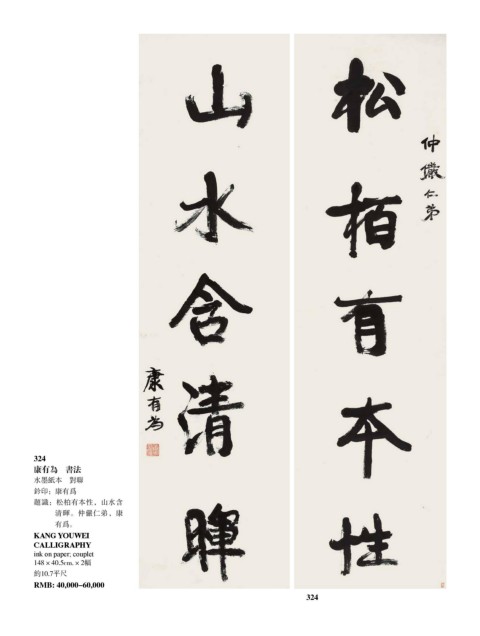 松栢有本性
仲儼仁弟
山水含清暉
康有為
324
康有為 書法
水墨紙本 對聯
鈐印：康有爲
題識：松柏有本性，山水含
清暉。仲儼仁弟，康
有爲。
KANG YOUWEI
CALLIGRAPHY
ink on paper; couplet
148 × 40.5cm. × 2幅
約10.7平尺
RMB: 40,000–60,000
324